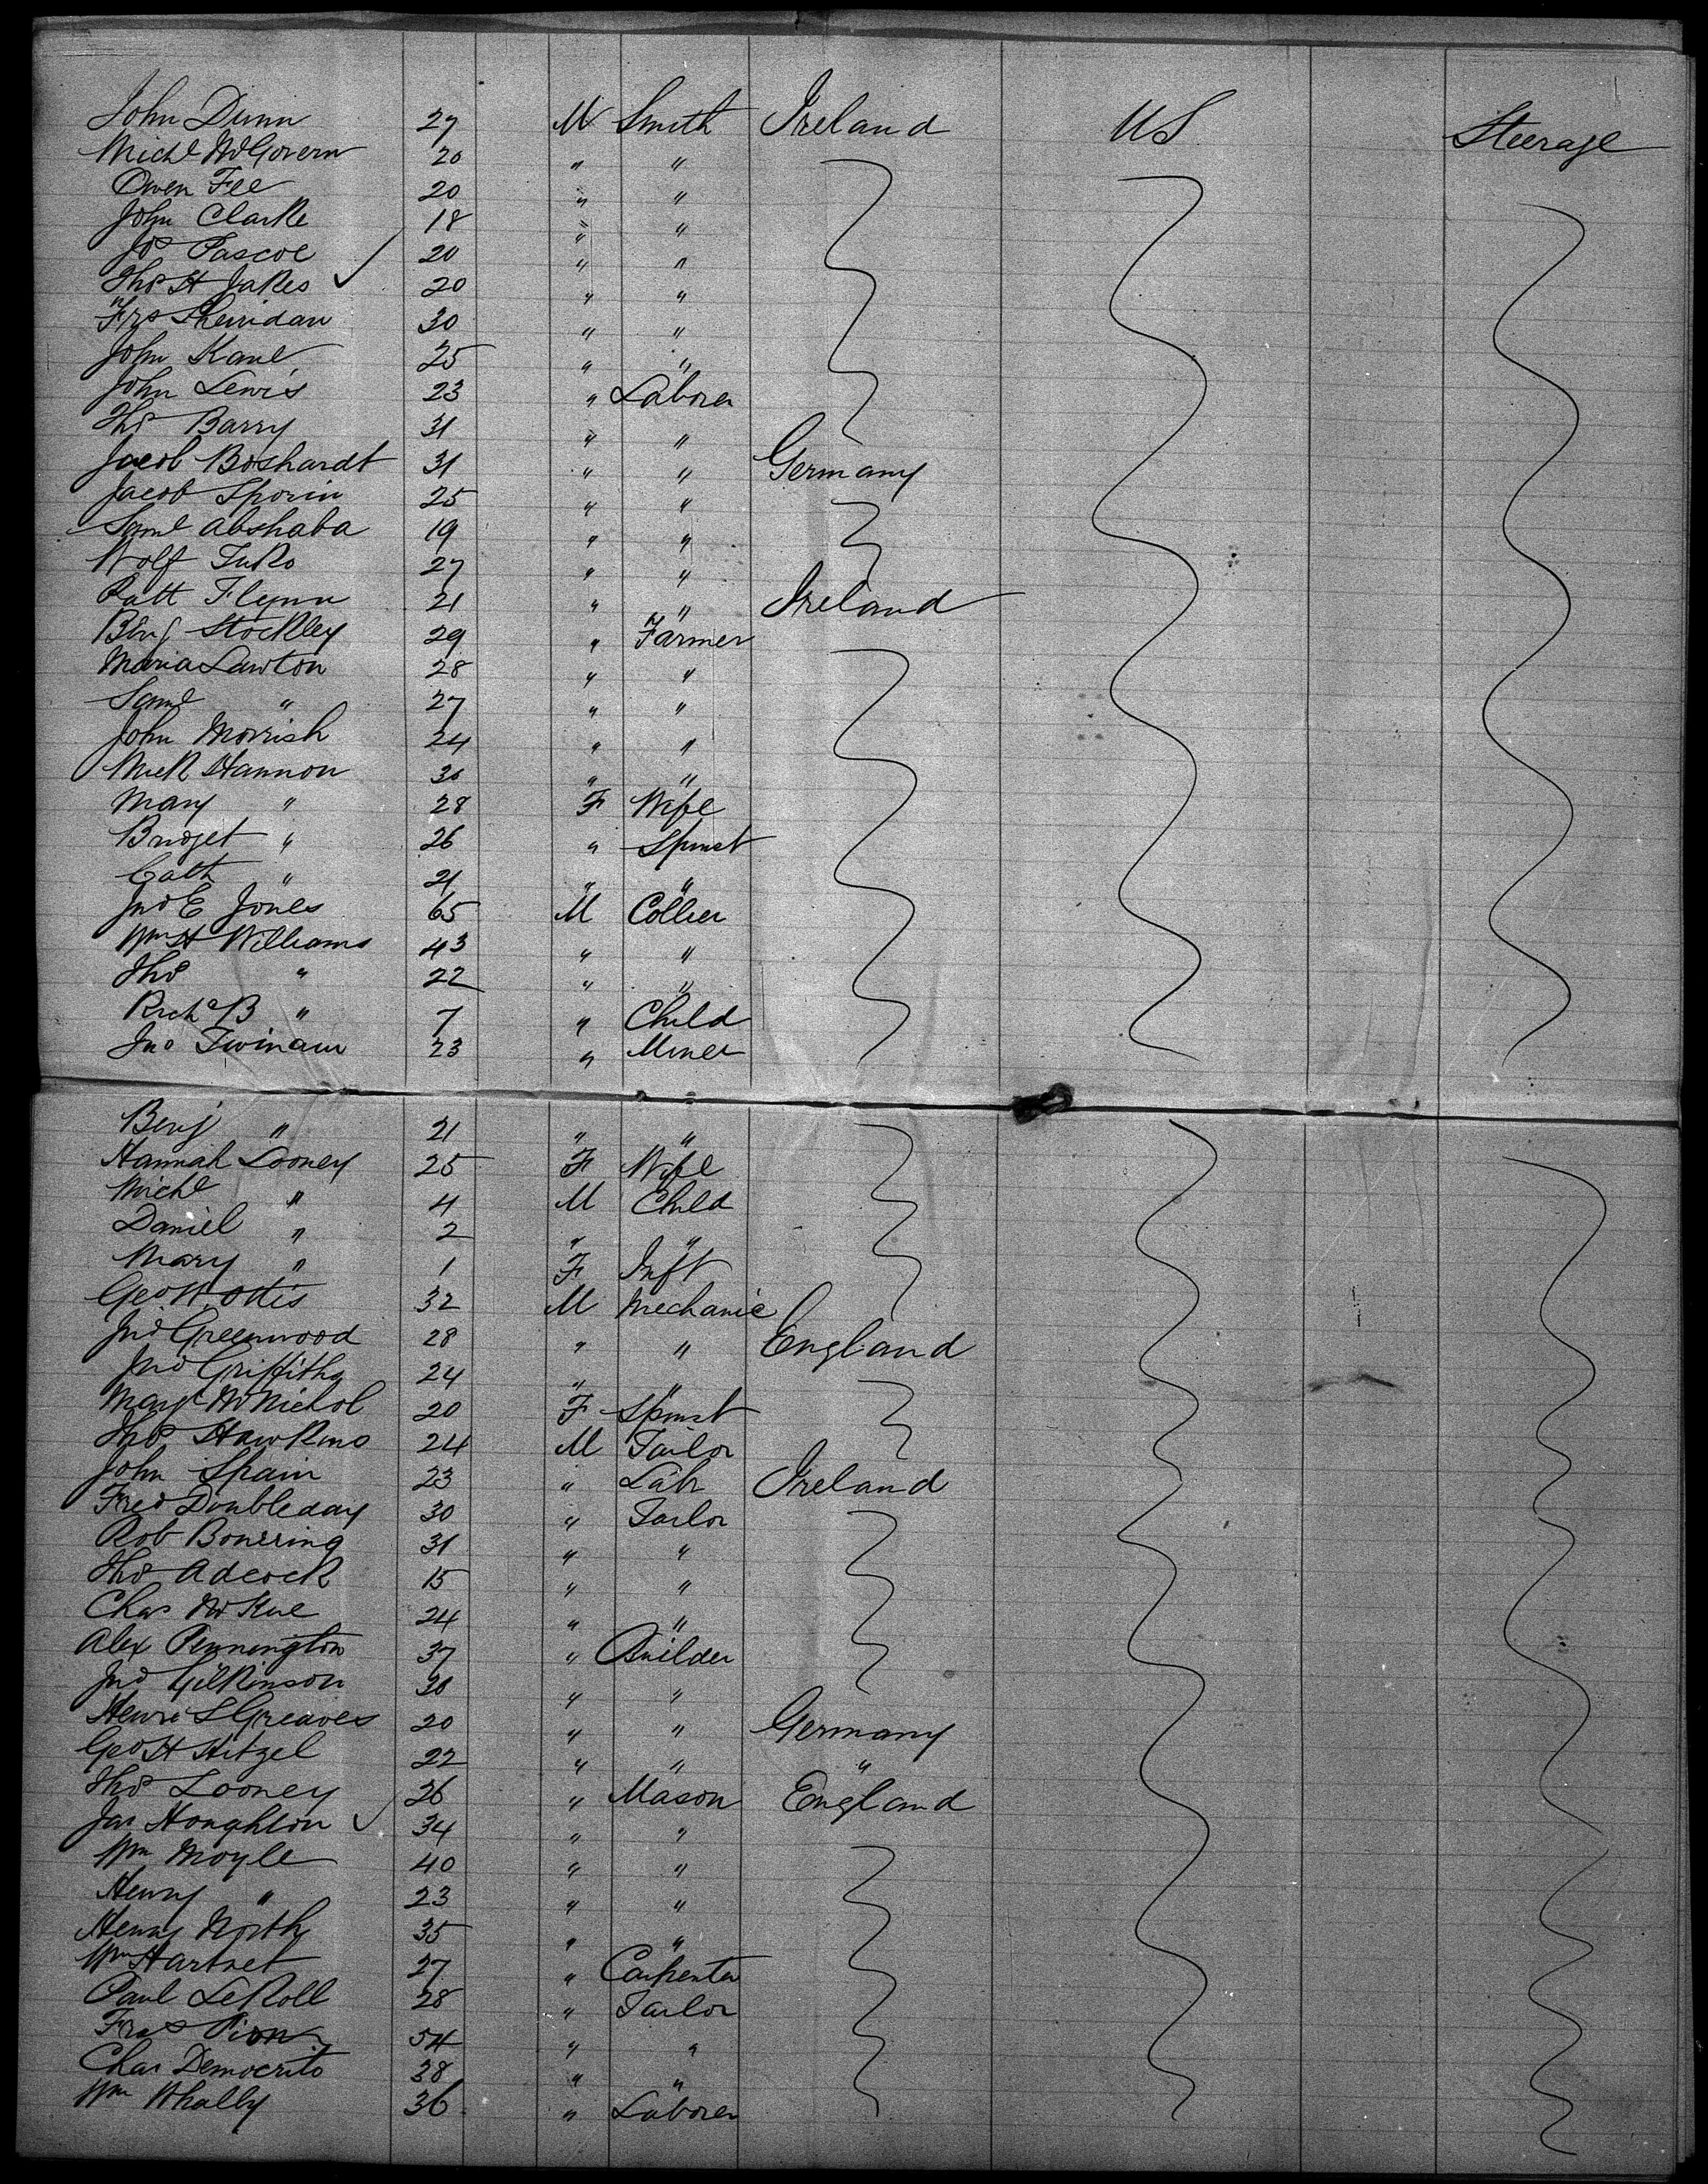 John Dunn 27 M Smith Ireland US Steerage
Michl McGovern 20 " "
Owen Fee 20 " "
John Clarke 18 " "
Jos Pascoe 20 " "
Thos H Jakes ✓ 20 " "
Frs Sheridan 30 " "
John Kane 25 " "
John Lewis 23 " Laborer
Thos Barry 31 " "
Jacob Boshardt 31 " " Germany
Jacob Sporin 25 " "
Saml Abshaba 19 " "
Wolf Tuko 27 " "
Patt Flynn 21 " " Ireland
Benj Stockley 29 " Farmer
Maria Lawton 28 " "
Saml " 27 " "
John Morrish 24 " "
Mick Hannon 30 " "
Mary " 28 F Wife
Bridget " 26 " Spinst
Cath " 21 " "
Jno E Jones 65 M Collier
Wm H Williams 43 " "
Thos " 22 " "
Richd B " 7 " Child
Jno Twinam 23 " Miner
Benj " 21 " "
Hannah Looney 25 F Wife
Michl " 4 M Child
Daniel " 2 " "
Mary " 1 F Inft
Geo W Otis 32 M Mechanic
Jno Greenwood 28 " " England
Jno Griffiths 24 " "
Margt McNichol 20 F Spinst
Thos Hawkins 24 M Tailor
John Spain 23 " Labr Ireland
Fred Doubleday 30 " Tailor
Rob 31 " "
Thos Adcock 15 " "
Chas McKue 24 " "
Alex Pennington 37 " Builder
Jno Gilkinson 30 " "
Henri S Greaves 20 " " Germany
Geo H Hitzel 22 " " "
Thos Looney 26 " Mason England
Jas Houghton ✓ 34 " "
Wm Moyle 40 " "
Henry " 23 " "
Henry North 35 " "
Wm Hartnet 27 " Carpenter
Paul LeRoll 28 " Tailor
Fras 54 " "
Chas Democrito 38 " "
Wm Whally 36 " Laborer